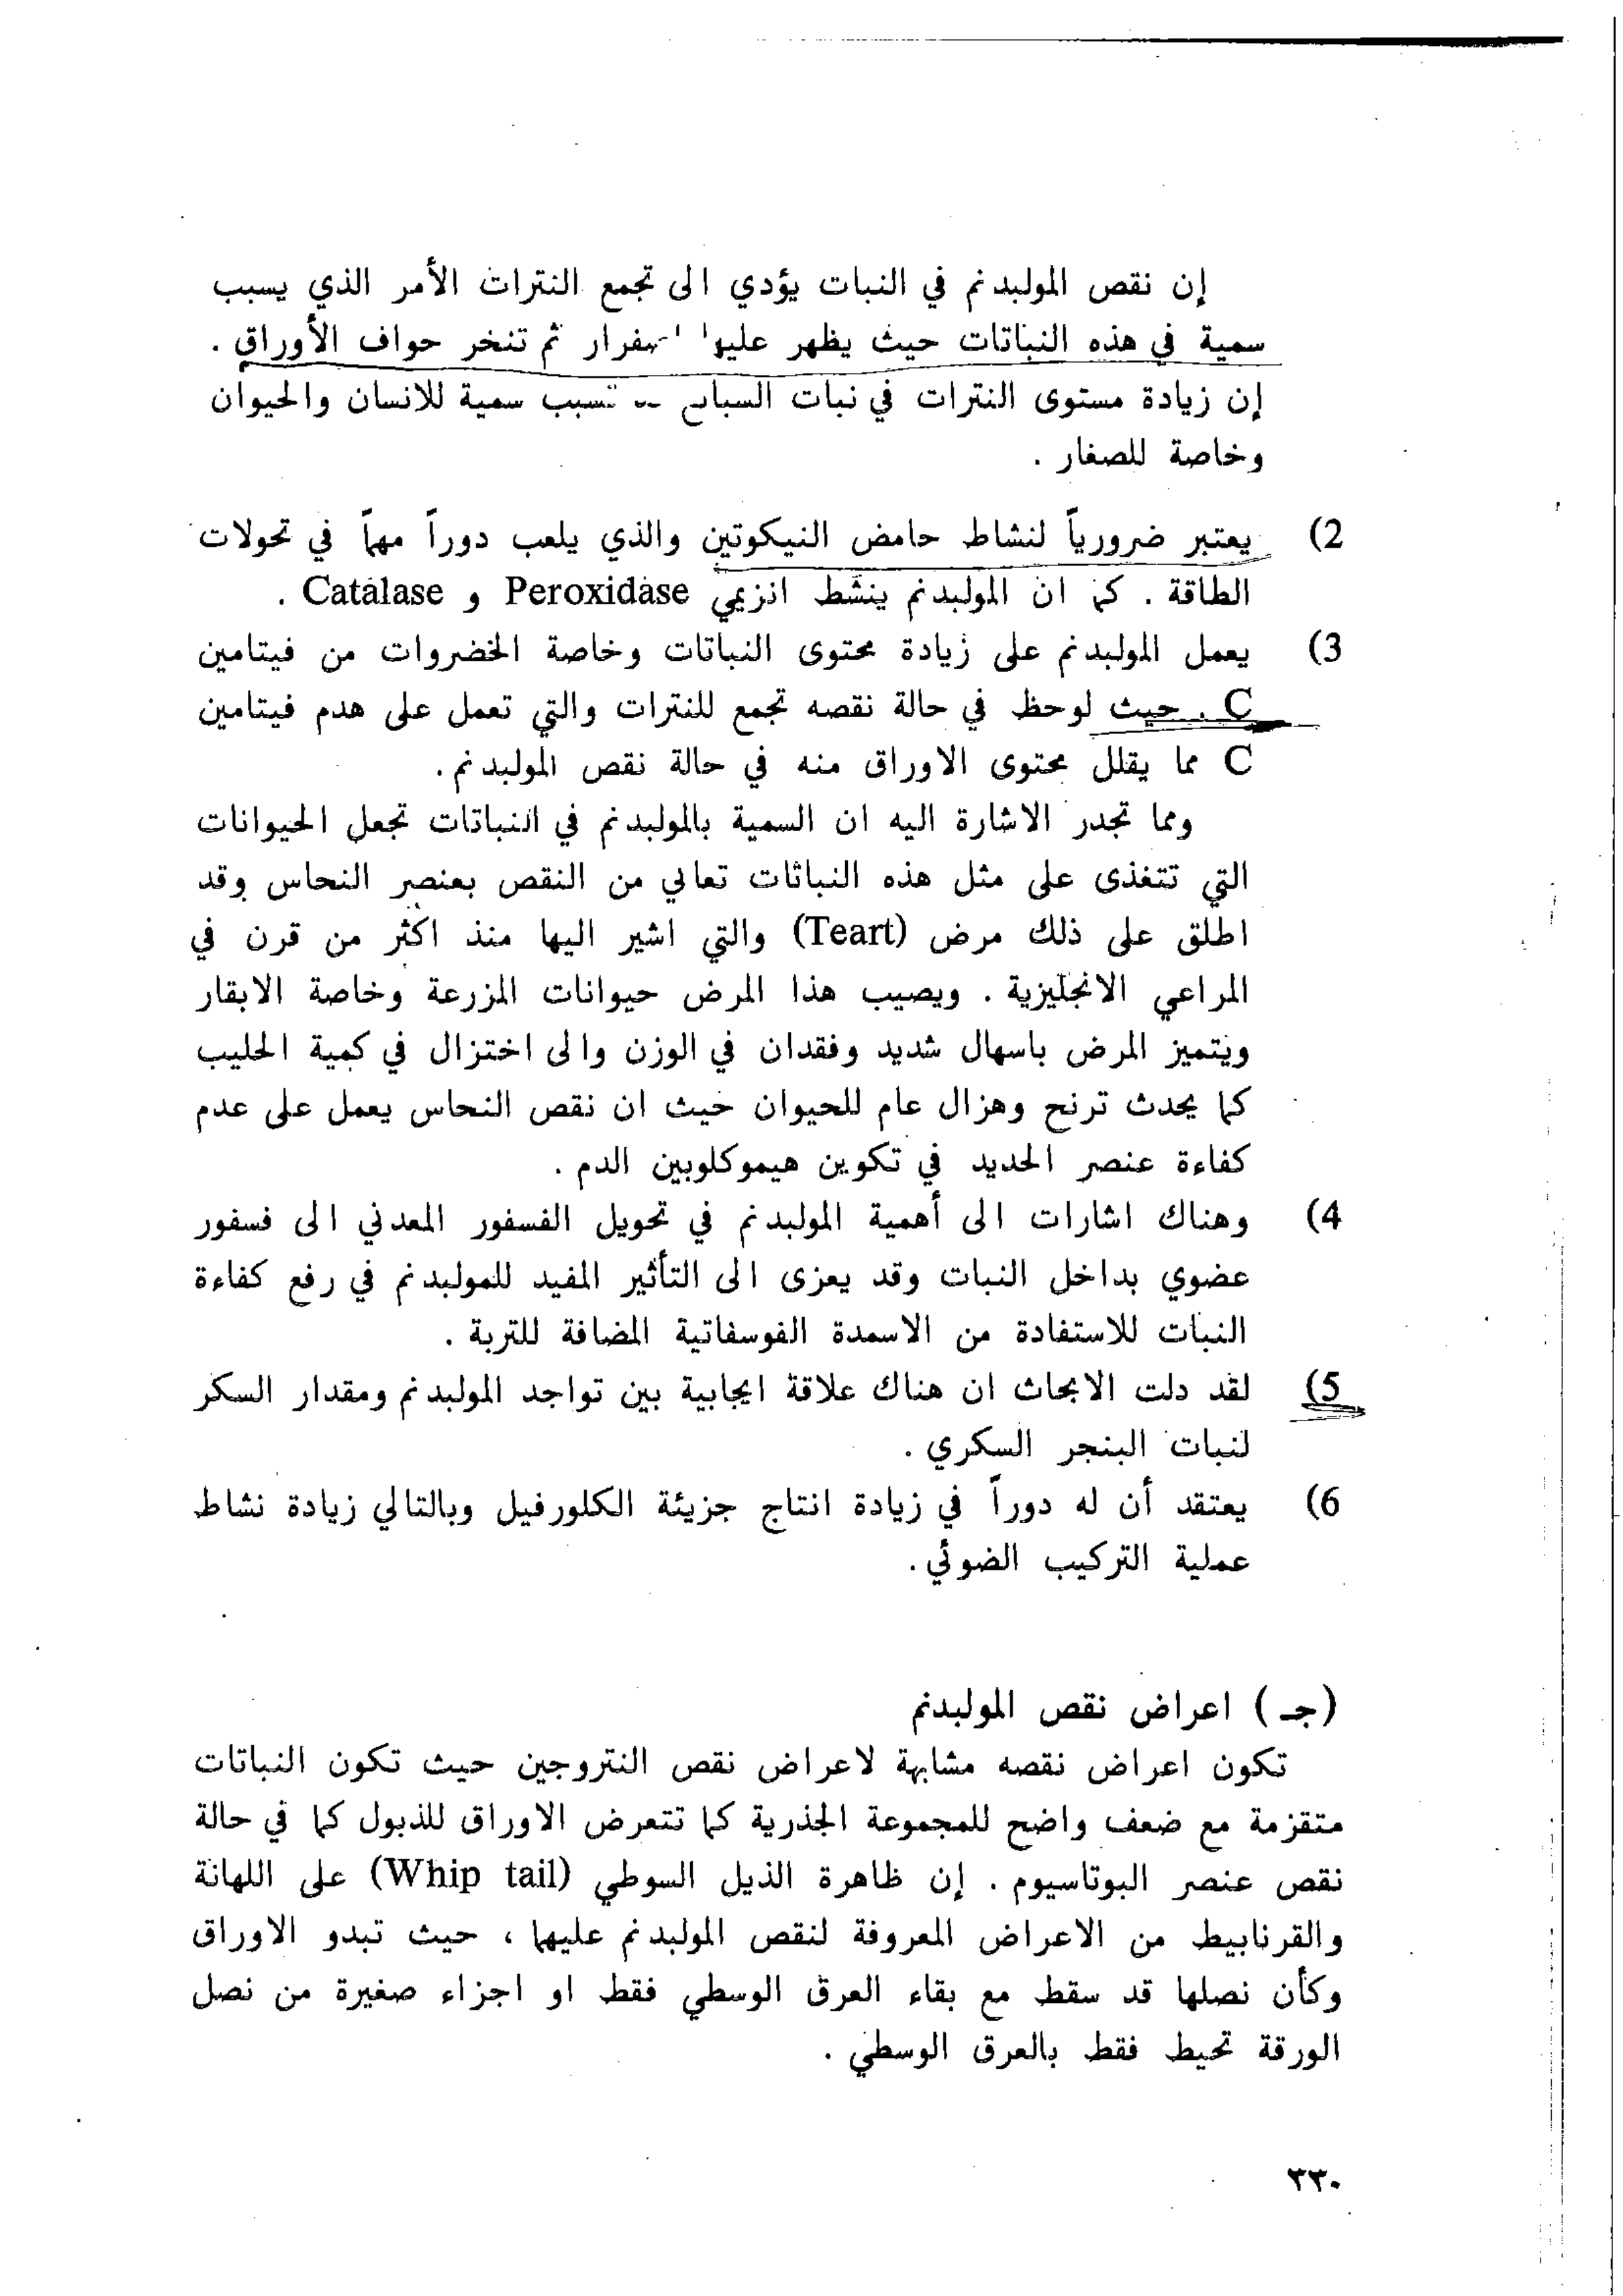 إن نقص المولبدنم في النبات يؤدي الى تجمع النترات الأمر الذي يسبب
سمية في هذه النباتات حيث يظهر عليها اصفرار ثم تنخر حواف الأوراق .
إن زيادة مستوى النترات في نبات تسبب سمية للانسان والحيوان
وخاصة للصغار .
2) يعتبر ضرورياً لنشاط حامض النيكوتين والذي يلعب دوراً مهماً في تحولات
الطاقة . كما ان المولبدنم ينشط انزيمي Peroxidase و Catalase .
3) يعمل المولبدنم على زيادة محتوى النباتات وخاصة الخضروات من فيتامين
C . حيث لوحظ في حالة نقصه تجمع للنترات والتي تعمل على هدم فيتامين
C مما يقلل محتوى الاوراق منه في حالة نقص المولبدنم .
ومما تجدر الاشارة اليه ان السمية بالمولبدنم في النباتات تجعل الحيوانات
التي تتغذى على مثل هذه النباتات تعاني من النقص بعنصر النحاس وقد
اطلق على ذلك مرض (Teart) والتي اشير اليها منذ اكثر من قرن في
المراعي الانجليزية . ويصيب هذا المرض حيوانات المزرعة وخاصة الابقار
ويتميز المرض باسهال شديد وفقدان في الوزن والى اختزال في كمية الحليب
كما يحدث ترنح وهزال عام للحيوان حيث ان نقص النحاس يعمل على عدم
كفاءة عنصر الحديد في تكوين هيموكلوبين الدم .
4) وهناك اشارات الى أهمية المولبدنم في تحويل الفسفور المعدني الى فسفور
عضوي بداخل النبات وقد يعزى الى التأثير المفيد للمولبدنم في رفع كفاءة
النبات للاستفادة من الاسمدة الفوسفاتية المضافة للتربة .
5) لقد دلت الابحاث ان هناك علاقة ايجابية بين تواجد المولبدنم ومقدار السكر
لنبات البنجر السكري .
6) يعتقد أن له دوراً في زيادة انتاج جزيئة الكلورفيل وبالتالي زيادة نشاط
عملية التركيب الضوئي .
(جـ) اعراض نقص المولبدنم
تكون اعراض نقصه مشابهة لاعراض نقص النتروجين حيث تكون النباتات
متقزمة مع ضعف واضح للمجموعة الجذرية كما تتعرض الاوراق للذبول كما في حالة
نقص عنصر البوتاسيوم . إن ظاهرة الذيل السوطي (Whip tail) على اللهانة
والقرنابيط من الاعراض المعروفة لنقص المولبدنم عليهما ، حيث تبدو الاوراق
وكأن نصلها قد سقط مع بقاء العرق الوسطي فقط او اجزاء صغيرة من نصل
الورقة تحيط فقط بالعرق الوسطي .
٣٣٠